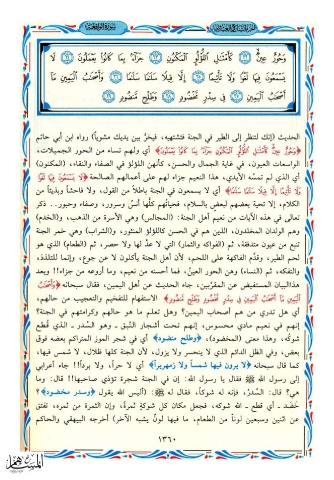 وَحُورٌ عِينٌ ۝ كَأَمْثَالِ اللُّؤْلُؤِ الْمَكْنُونِ ۝ جَزَاءً بِمَا كَانُوا يَعْمَلُونَ ۝ لَا
يَسْمَعُونَ فِيهَا لَغْوًا وَلَا تَأْثِيمًا ۝ إِلَّا قِيلًا سَلَامًا سَلَامًا ۝ وَأَصْحَابُ الْيَمِينِ مَا
أَصْحَابُ الْيَمِينِ ۝ فِي سِدْرٍ مَخْضُودٍ ۝ وَطَلْحٍ مَنْضُودٍ
الحديث (إنك لتنظر إلى الطير في الجنة فتشتهيه، فيخرُّ بين يديك مشوياً) رواه ابن أبي حاتم
﴿وَحُورٌ عِينٌ كَأَمْثَالِ اللُّؤْلُؤِ الْمَكْنُونِ جَزَاءً بِمَا كَانُوا يَعْمَلُونَ﴾ أي ولهم نساء من الحور الجميلات،
الواسعات العيون، في غاية الجمال والحسن، كأنهن اللؤلؤ في الصفاء والنقاء، (المكنون)
أي الذي لم تمسَّه الأيدي، هذا النعيم جزاء لهم على أعمالهم الصالحة ﴿لَا يَسْمَعُونَ فِيهَا لَغْوًا
وَلَا تَأْثِيمًا إِلَّا قِيلًا سَلَامًا سَلَامًا﴾ أي لا يسمعون في الجنة باطلاً من القول، ولا فاحشاً وبذيئاً من
الكلام، إلا تحية بعضهم لبعض بالسلام، فحياتهم كلُّها أنسٌ وسرور، وصفاء وحبور.. ذكر
تعالى في هذه الآيات من نعيم أهل الجنة: (المجالس) وهي الأسرة من الذهب، و(الخدم)
وهم الولدان المخلدون، الذين هم في الحسن كاللؤلؤ المنثور، و(الشراب) وهي خمر الجنة
تنبع من عيون متدفقة، ثم (الفواكه والثمار) التي لا عدَّ لها ولا حصر، ثم (الطعام) الذي هو
لحم الطير، وقدَّم الفاكهة على اللحم، لأن أهل الجنة يأكلون لا عن جوع، وإنما للتلذذ،
والتفكه، ثم (النساء) وهن الحور العينُ، فما أحسنه من نعيم، وما أروعه من جزاء!! وبعد
هذا البيان المستفيض عن المقرَّبين، جاء الحديث عن أهل اليمين، فقال سبحانه ﴿وَأَصْحَابُ
الْيَمِينِ مَا أَصْحَابُ الْيَمِينِ فِي سِدْرٍ مَخْضُودٍ وَطَلْحٍ مَنْضُودٍ﴾ الاستفهام للتفخيم والتعجيب من حالهم،
أي هل تدري من هم أصحاب اليمين؟ وهل تعلم ما هو حالهم وكرامتهم في الجنة؟
إنهم في نعيم مادي محسوس، إنهم تحت أشجار النَّبق ـ وهو السِّدر ـ الذي قُطع
شوكه، وهذا معنى (المخضود)، ﴿وطلح منضود﴾ أي في شجر الموز المتراكم بعضه فوق
بعض، وفي الظل الدائم الذي لا ينحسر ولا يزول، لأن الجنة كلها ظلال، لا شمس فيها،
كما قال سبحانه ﴿لا يرون فيها شمساً ولا زمهريراً﴾ أي لا حراً، ولا برداً!! جاء أعرابي
إلى رسول الله ﷺ فقال يا رسول الله: إن في الجنة شجرة تؤذي صاحبها!! قال: وما
هي؟ قال: السِّدْر، فإنه له شوكاً، فقال له ﷺ: (أليس الله يقول ﴿وسدر مخضود﴾؟
خَضَد ـ أي قطع ـ الله شوكه، فجعل مكان كل شوكةٍ ثمرةً، وإن الثمرة من ثمره، تفتق
عن اثنين وسبعين لوناً من الطعام، ما فيها لونٌ يشبه الآخر) أخرجه البيهقي والحاكم
١٣٦٠